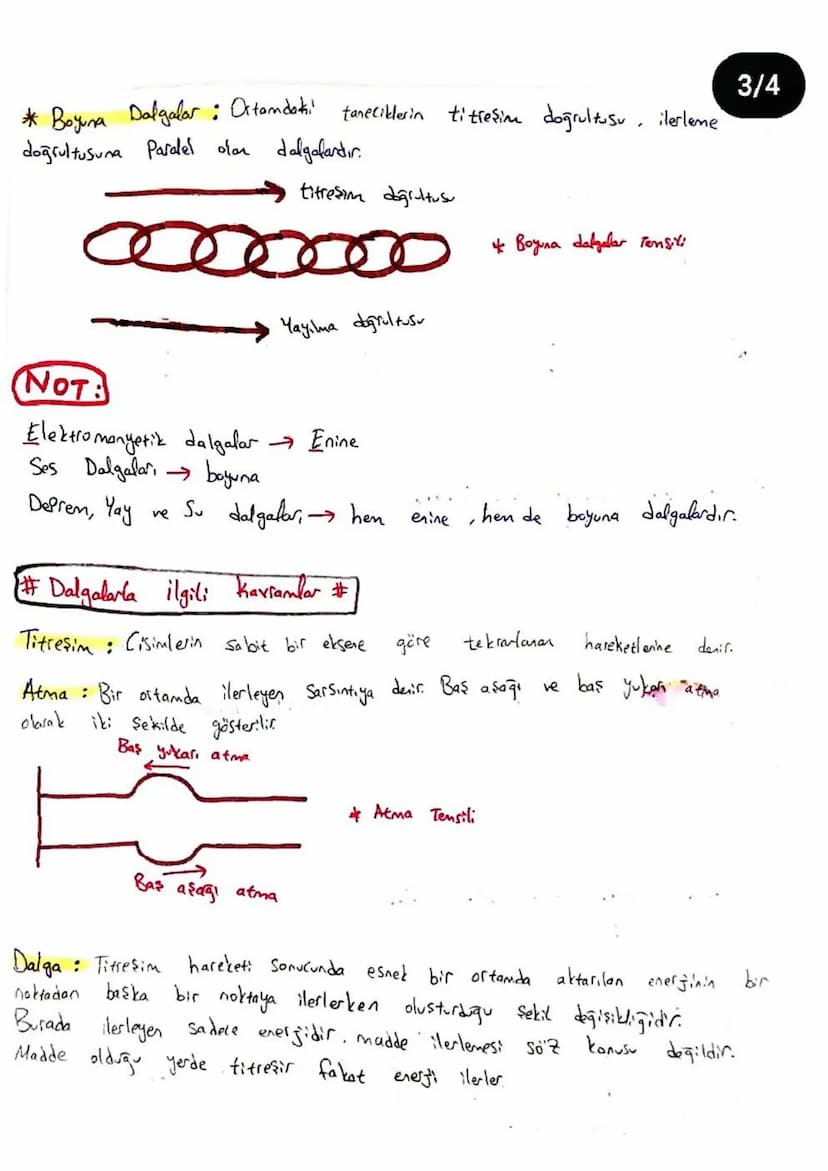 3/4
* Boyuna Dalgalar : Ortamdaki taneciklerin titreşim doğrultusu, ilerleme
doğrultusuna Paralel olan dalgalardır.
titreşim doğrultusu
* Boyuna dalgalar Temsili
Yayılma doğrultusu
NOT:
Elektromanyetik dalgalar → Enine
Ses Dalgaları → boyuna
Deprem, Yay ve Su dalgaları → hem enine, hem de boyuna dalgalardır.
# Dalgalarla ilgili Kavramlar #
Titreşim : Cisimlerin sabit bir eksene göre tekrarlanan hareketlerine denir.
Atma : Bir ortamda ilerleyen sarsıntıya denir. Baş aşağı ve baş yukarı atma
olarak iki şekilde gösterilir.
Baş yukarı atma
* Atma Temsili
Baş aşağı atma
Dalga : Titreşim hareketi sonucunda esnek bir ortamda aktarılan enerjinin bir
noktadan başka bir noktaya ilerlerken oluşturduğu şekil değişikliğidir.
Burada ilerleyen sadece enerjidir, madde ilerlemesi söz konusu değildir.
Madde olduğu yerde titreşir fakat enerji ilerler